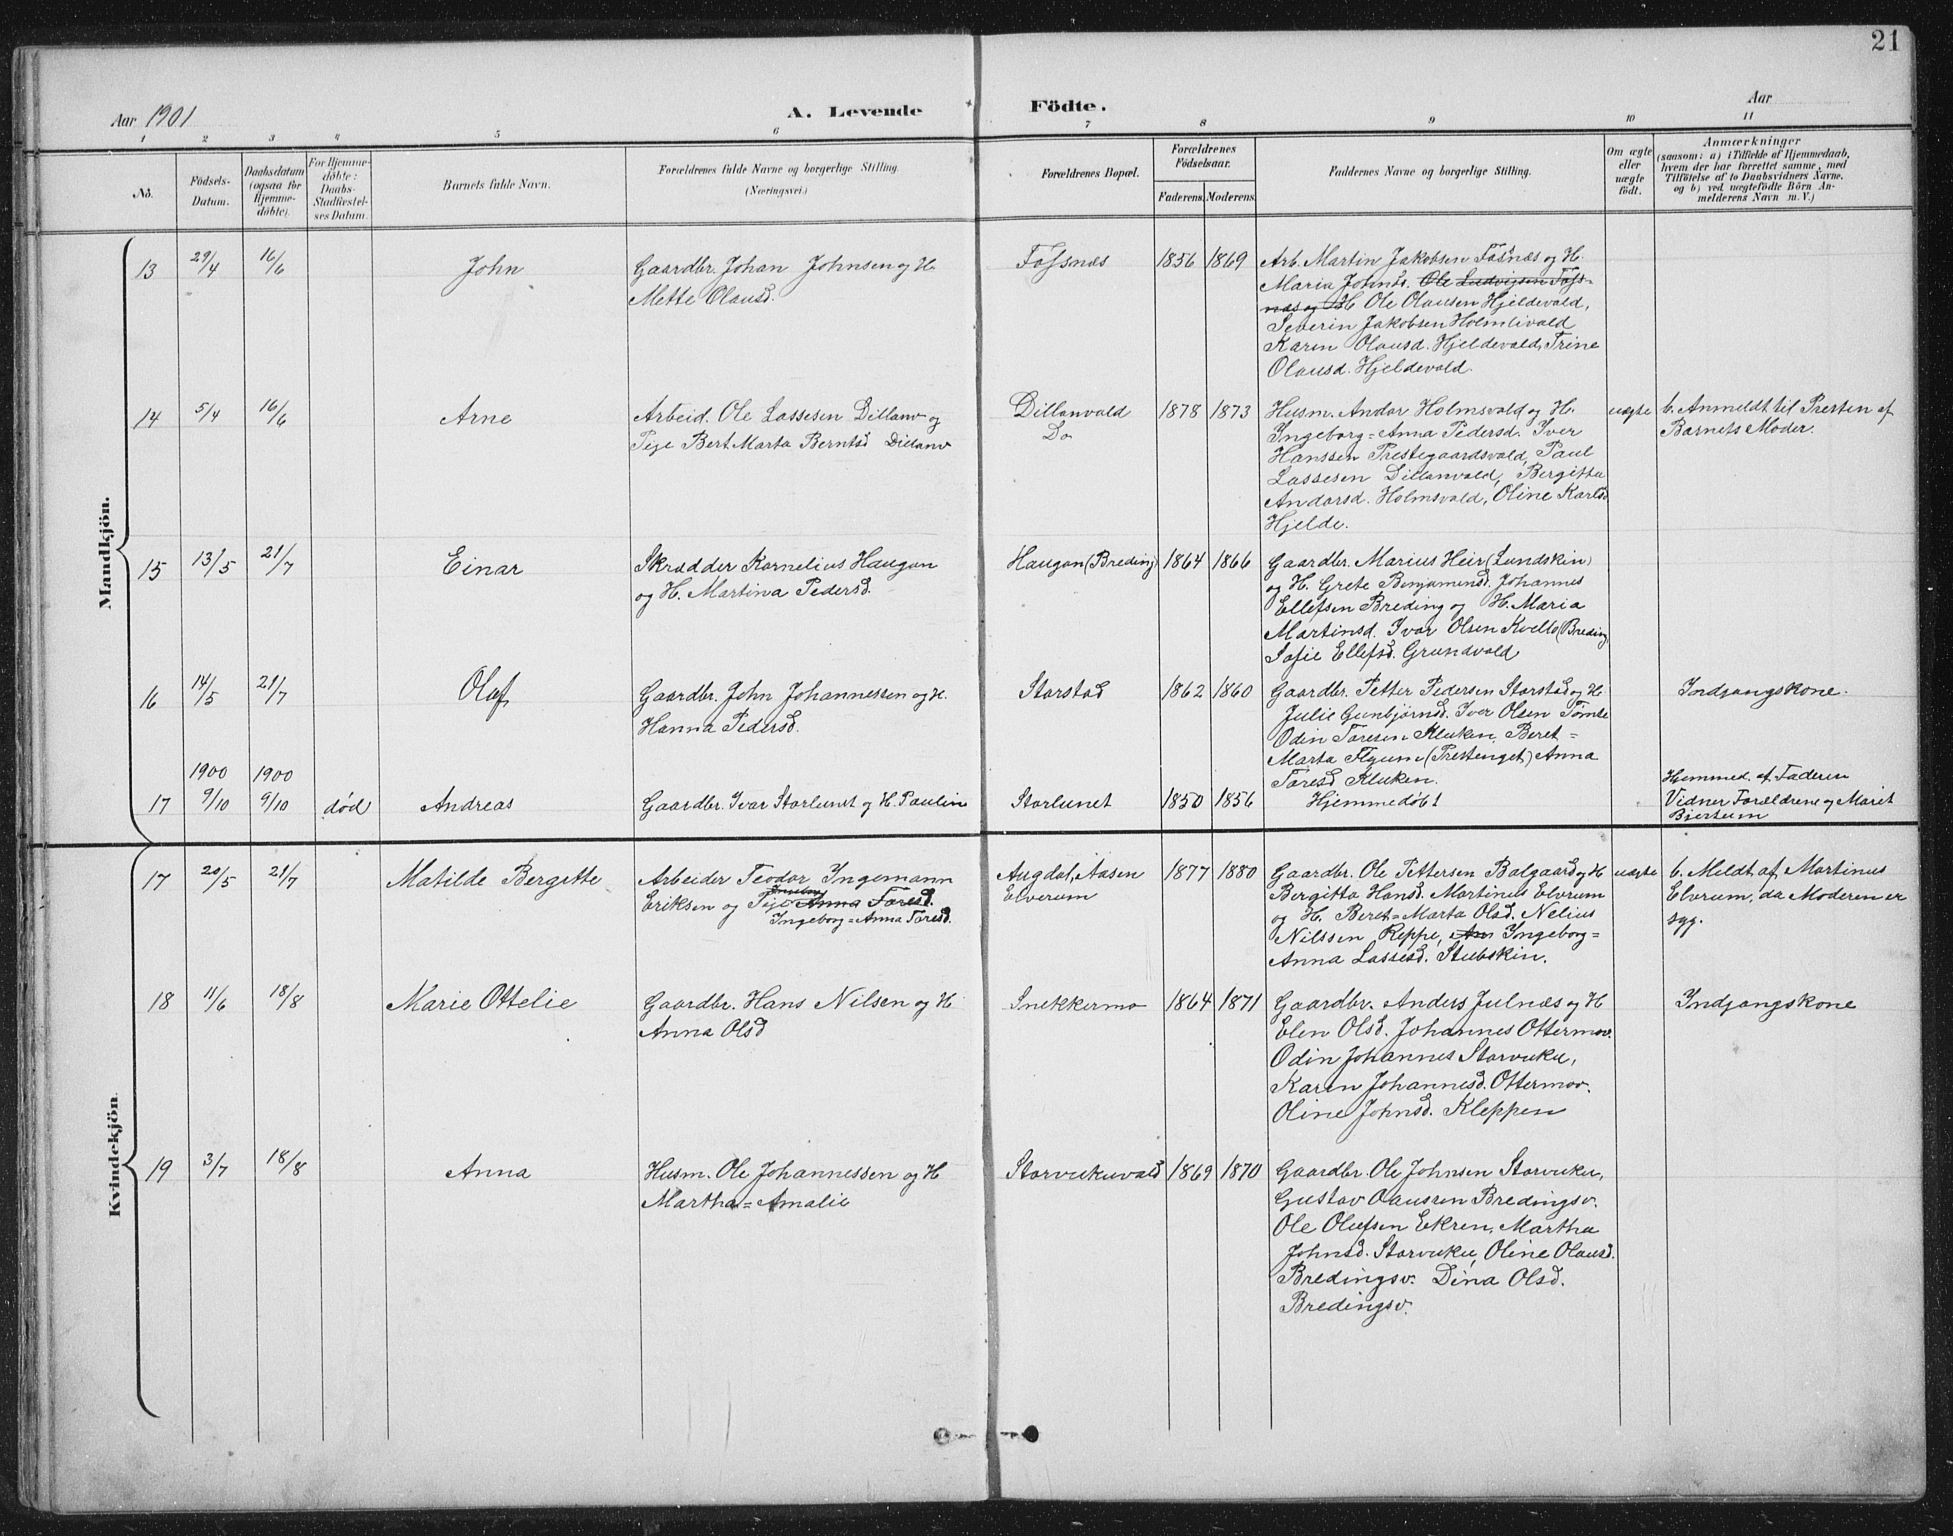 21
Aar 1901
A. Levende
Födte.
Aar
1 2 3 4 5 6 7 8 9 10 11
No.
Födsels-
Datum.
Daabsdatum
(ogsaa for
Hjemme-
döbte).
For Hjemme-
döbte:
Daabs-
Stadfæstel-
ses Datum.
Barnets fulde Navn.
Forældrenes fulde Navne og borgerlige Stilling.
(Næringsvei.)
Forældrenes Bopæl.
Forældrenes
Födselsaar.
Faderens. Moderens.
Faddernes Navne og borgerlige Stilling.
Om ægte
eller
uægte
födt.
Anmærkninger
(saasom: a) i Tilfælde af Hjemmedaab,
hvem der har forrettet samme, med
Tilföielse af to Daabsvidners Navne,
og b) ved uægtefödte Börn An-
melderens Navn m. V.)
Mandkjön.
13 29/4 16/6 John
Gaardbr. Johan Johnsen og H.
Mette Olausd.
Fossnæs 1856 1869
Arb. Martin Jakobsen Fosnæs og H.
Maria Johnsd. Ole Ludvigsen Foss-
næs og H Ole Olausen Hjeldevald,
Severin Jakobsen Holmlivald
Karen Olausd. Hjeldevald, Trine
Olausd. Hjeldevald.
14 5/4 16/6 Arne
Arbeid. Ole Lassesen Dillanv og
Pige Bert Marta Berntsd Dillanv
Dillanvald 1878 1873
Do
Husm. Andor Holmsvald og H.
Ingeborg=Anna Pedersd. Iver
Hanssen Prestegaardsvald, Paul
Lassesen Dillanvald, Bergitta
Andorsd. Holmsvald, Oline Karlsd
Hjelde.
uægte
b. Anmeldt til Presten af
Barnets Moder.
15 13/5 21/7 Einar
Skrædder Kornelius Haugan
og H. Martina Pedersd.
Haugan (Breding) 1864 1866
Gaardbr. Marius Heir (Lundskin)
og H. Grete Benjaminsd. Johannes
Ellefsen Breding og H. Maria
Martinsd. Ivar Olsen Kvello (Breding
Sofie Ellefsd. Grundvald
16 14/5 21/7 Olaf
Gaardbr. John Johannessen og H.
Hanna Pedersd.
Storstad 1862 1860
Gaardbr. Petter Pedersen Storstad og H
Julie Gunbjørnsd. Iver Olsen Tømte
Odin Toresen Kluken, Beret=
Marta Flyum (Prestenget) Anna
Toresd Kluken.
Indgangskone.
1900 1900
17 9/10 9/10 død Andreas
Gaardbr. Ivar Storlunet og H. Pauline
Storlunet 1850 1856
Hjemmedøbt
Hemmed. af Faderen
Vidner Forældrene og Maret
Bjertum
Kvindekjön.
17 20/5 21/7 Matilde Bergitte
Arbeider Teodor Ingemann
Ingeborg
Eriksen og Pige Anna Toresd.
Ingeborg=Anna Toresd.
Augdal, Aasen 1877 1880
Elverum
Gaardbr. Ole Pettersen Balgaard og H
Bergitta Hansd. Martinus Elvrum
og H. Beret=Marta Olsd. Nelius
Nilssen Reppe, An Ingeborg=
Anna Lassesd. Stubskin.
uægte
b. Meldt af Martinus
Elvrum, da Moderen er
syg.
18 11/6 18/8 Marie Ottelie
Gaardbr. Hans Nilsen og H
Anna Olsd
Snekkermo 1864 1871
Gaardbr. Anders Julnæs og H
Elen Olsd. Johannes Ottermov.
Odin Johannes Storvuku,
Karen Johannesd. Ottermov.
Oline Johnsd. Kleppen
Indgangskone
19 3/7 18/8 Anna
Husm. Ole Johannessen og H
Martha=Amalie
Storvukuvald 1869 1870
Gaardbr. Ole Johnsen Storvuku,
Gustav Olaussen Bredingsv.
Ole Olufsen Ekren, Martha
Johnsd. Storvuku, Oline Olausd.
Bredingsv. Dina Olsd.
Bredingsv.